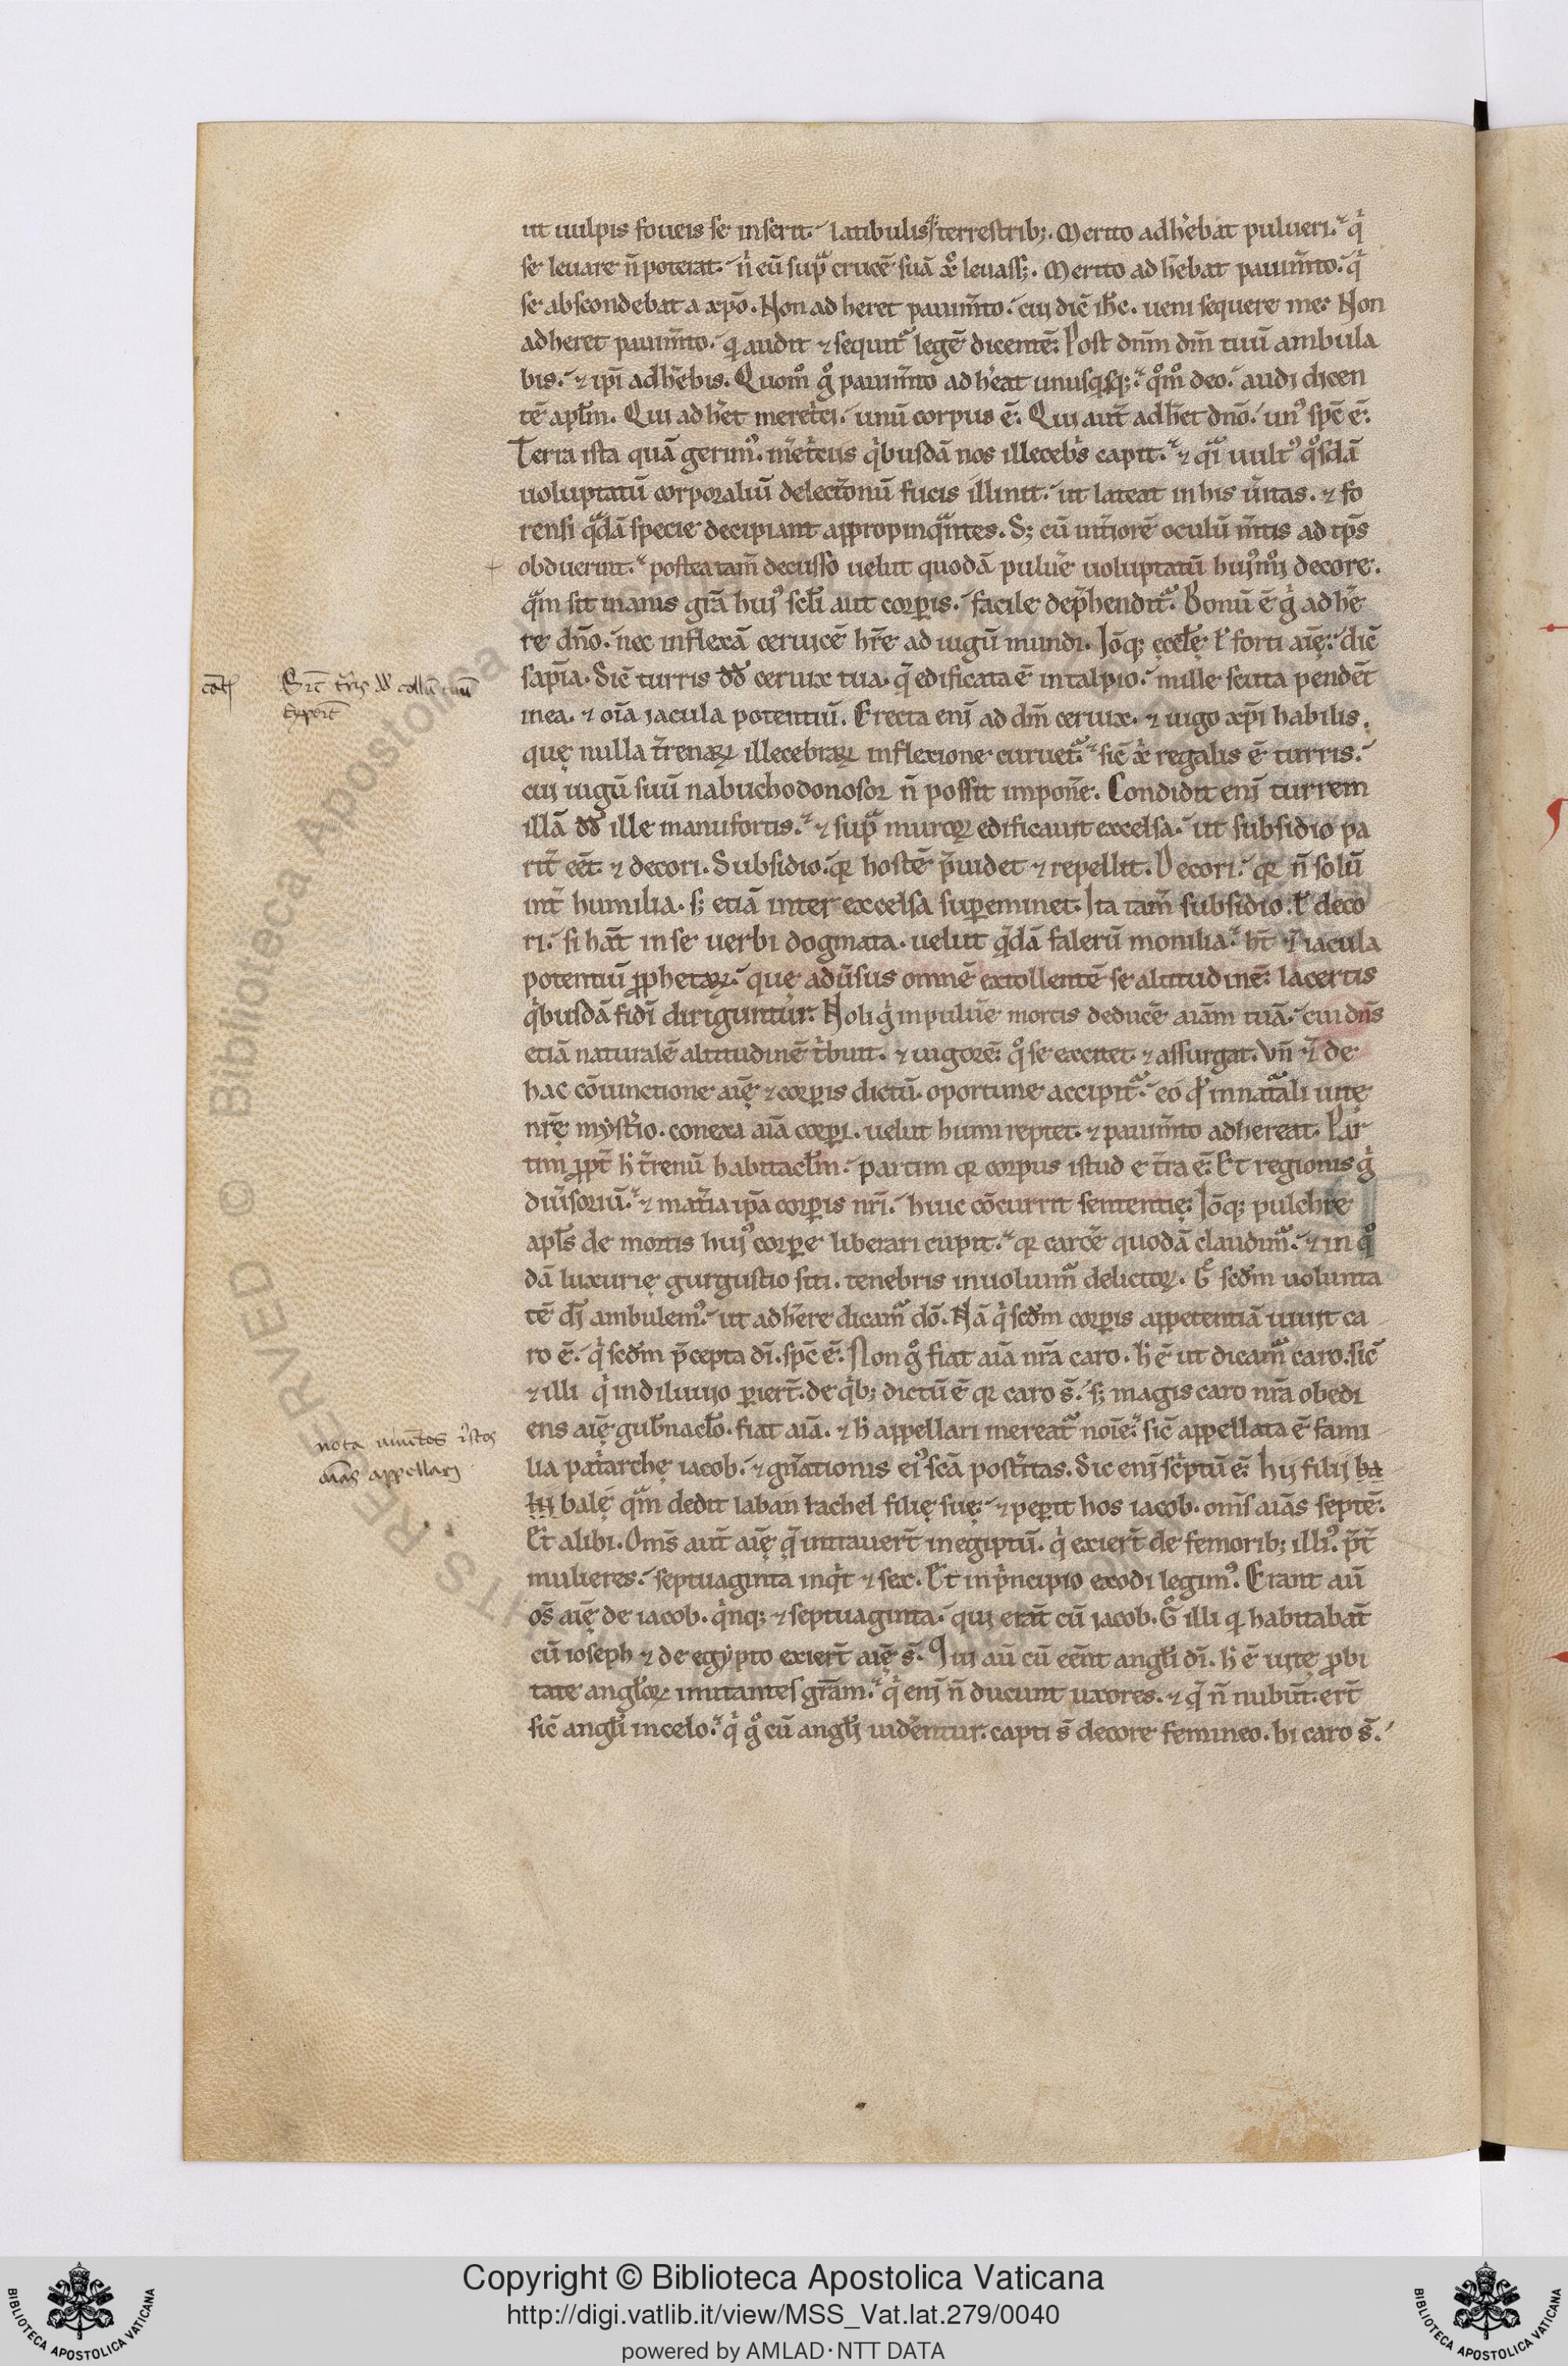 ut uulpis foueis se inserit. latibulisq; terrestrib;. Merito adhe̅bat pulueri. qͥ
se leuare n̅ poterat. nͥ eu̅ supᷓ cruce̅ sua̅ xp̅c leuass;. Merito ad he̅bat pauim̅to. qͥ
se abscondebat a xp̅o. Non ad heret pauim̅to. cui dic̅ ih̅c. ueni sequere me. Non
adheret pauim̅to. qui audit ⁊ sequitᷓ lege̅ dicente̅. Post dn̅m dm̅ tuu̅ ambula
bis. ⁊ ip̅i adhe̅bis. Quomͦ gͦ pauim̅to ad he̅at unusqͥsq;. qͦmͦ deo. audi dicen
te̅ apl̅m. Qui ad he̅t meret̅ci. unu̅ corpus e̅. Qui aut̅ adhe̅t dn̅o. unꝰ sp̅c e̅.
Terra ista qua̅ gerimꝰ. m̅et̅ciis qͥbusda̅ nos illecebͥs capit. ⁊ qᷓi uultꝰ qͦsda̅
uoluptatu̅ corporaliu̅ delect̅onu̅ fucis illinit. ut lateat in his u̅itas. ⁊ fo
rensi qᷓda̅ specie decipiant appropinqᷓntes. S; cu̅ int̅iore̅ oculu̅ m̅tis ad ip̅s
obduerint. postea tam̅ decusso uelut quoda̅ pulue̅ uoluptatu̅ huiꝰmͥ decore.
qᷓm sit inanis gr̅a huiꝰ scl̅i aut corꝑis. facile dep̅henditᷓ. Bonu̅ e̅ gͥ adhe̅
re dn̅o. nec inflexa̅ ceruice̅ hr̅e ad iugu̅ mundi. Io̅q; eccl̅ę ł forti ai̅ę. dic̅
sapi̅a. Sic̅ turris dd̅ ceruix tua. q̅ edificata e̅ in talpio. mille scuta pende̅t
in ea. ⁊ oi̅a iacula potentiu̅. Erecta eni̅ ad dm̅ ceruix. ⁊ iugo xp̅i habilis.
quę nulla t̅renaꝝ illecebraꝝ inflexione curuetᷓ. sic̅ xp̅i regalis e̅ turris.
cui iugu̅ suu̅ nabuchodonosor n̅ possit impone̅. Condidit eni̅ turrem
illa̅ dd̅ ille manufortis. ⁊ supᷓ muroꝝ edificauit excelsa. ut subsidio pa
rit̅ ee̅t. ⁊ decori. Subsidio. qꝛ hoste̅ p̅uidet ⁊ repellit. Decori. qꝛ n̅ solu̅
int̅ humilia. s; etia̅ inter excelsa suꝑeminet. Ita tam̅ subsidio. ł deco
ri. si ha̅t in se uerbi dogmata. uelut qᷓda̅ faleru̅ monilia. ht̅ ⁊ iacula
potentiu̅ ꝓphetaꝝ. quę adu̅sus omne̅ extollente̅ se altitudine̅. lacertis
qͥbusda̅ fidi̅ diriguntur. Noli gͥ in pulue̅ mortis deduce̅ aia̅m tua̅. cui dn̅s
etia̅ naturale̅ altitudine̅ tͥbuit. ⁊ uigore̅. qͦ se excitet. ⁊ assurgat. Vn̅ ⁊ de
hac co̅iunctione ai̅ę ⁊ corꝑis dictu̅. oportune accipitᷓ. eo qd̅ in natᷓali uitę
nr̅ę myst̅io. conexa ai̅a corꝑi. uelut humi reptet. ⁊ pauim̅to adhereat. Par
tim ꝓpt̅ hͥ t̅renu̅ habitacl̅m. partim qꝛ corpus istud e t̅ra e̅. Et regionis gͥ
diu̅soriu̅. ⁊ mat̅ia ip̅a corꝑis nr̅i. huic co̅currit sententię. Io̅q; pulchre
apl̅s de mortis huiꝰ corꝑe liberari cupit. qꝛ carce̅ quoda̅ claudimᷓ. ⁊ in qͦ
da̅ luxurię gurgustio siti. tenebris inuoluimᷓ delictoꝝ. Gͦ scd̅m uolunta
te̅ di̅ ambulemꝰ. ut adhe̅re dicamᷓ do̅. Na̅ qͥ scd̅m corꝑis appetentia̅ uiuit ca
ro e̅. qͥ scd̅m p̅cepta di̅. sp̅c e̅. Non gͦ fiat ai̅a nr̅a caro. hͥ e̅ ut dicamᷓ caro. sic̅
⁊ illi qͥ in diluuio ꝑiert̅. de qͥb; dictu̅ e̅ qꝛ caro s̅. s; magis caro nr̅a obedi
ens ai̅ę gub̅nacl̅o. fiat ai̅a. ⁊ hͥ appellari mereatᷓ noi̅e. sic̅ appellata e̅ fami
lia patͥarchę iacob. ⁊ gn̅ationis eiꝰ sc̅a post̅itas. Sic eni̅ sc̅ptu̅ e̅. Hii filii ba
lii balę qᷓm dedit laban rachel filię suę. ⁊ peꝑit hos iacob. om̅s ai̅as septe̅.
Et alibi. Om̅s aut̅ ai̅ę q̅ intrauert̅ in egiptu̅. qͥ exiert̅ de femorib; illiꝰ. p̅t̅
mulieres. septuaginta inqͥt ⁊ sex. Et in pͥncipio exodi legimꝰ. Erant au̅
os̅ ai̅ę de iacob. qͥnq; ⁊ septuaginta. qui erat̅ cu̅ iacob. Gͦ illi qui habitabat̅
cu̅ ioseph ⁊ de egypto exiert̅ ai̅ę s̅. Qui au̅ cu̅ ee̅nt angl̅i di̅. hͥ e̅ uitę ꝓbi
tate angl̅oꝝ imitantes gr̅am. qͥ eni̅ n̅ ducunt uxores. ⁊ q̅ n̅ nubu̅t. ert̅
sic̅ angl̅i in celo. qͥ gͦ cu̅ angl̅i uide̅ntur. capti s̅ decore femineo. hi caro s̅.
Sic̅ t̅ris dd̅ collu̅ tuu̅
expoit̅
nota uiuentes
ai̅as appellari
Copyright © Biblioteca Apostolica Vaticana
http://digi.vatlib.it/view/MSS_Vat.lat.279/0040
powered by AMLAD·NTT DATA
BIBLIOTECA APOSTOLICA VATICANA
BIBLIOTECA APOSTOLICA VATICANA